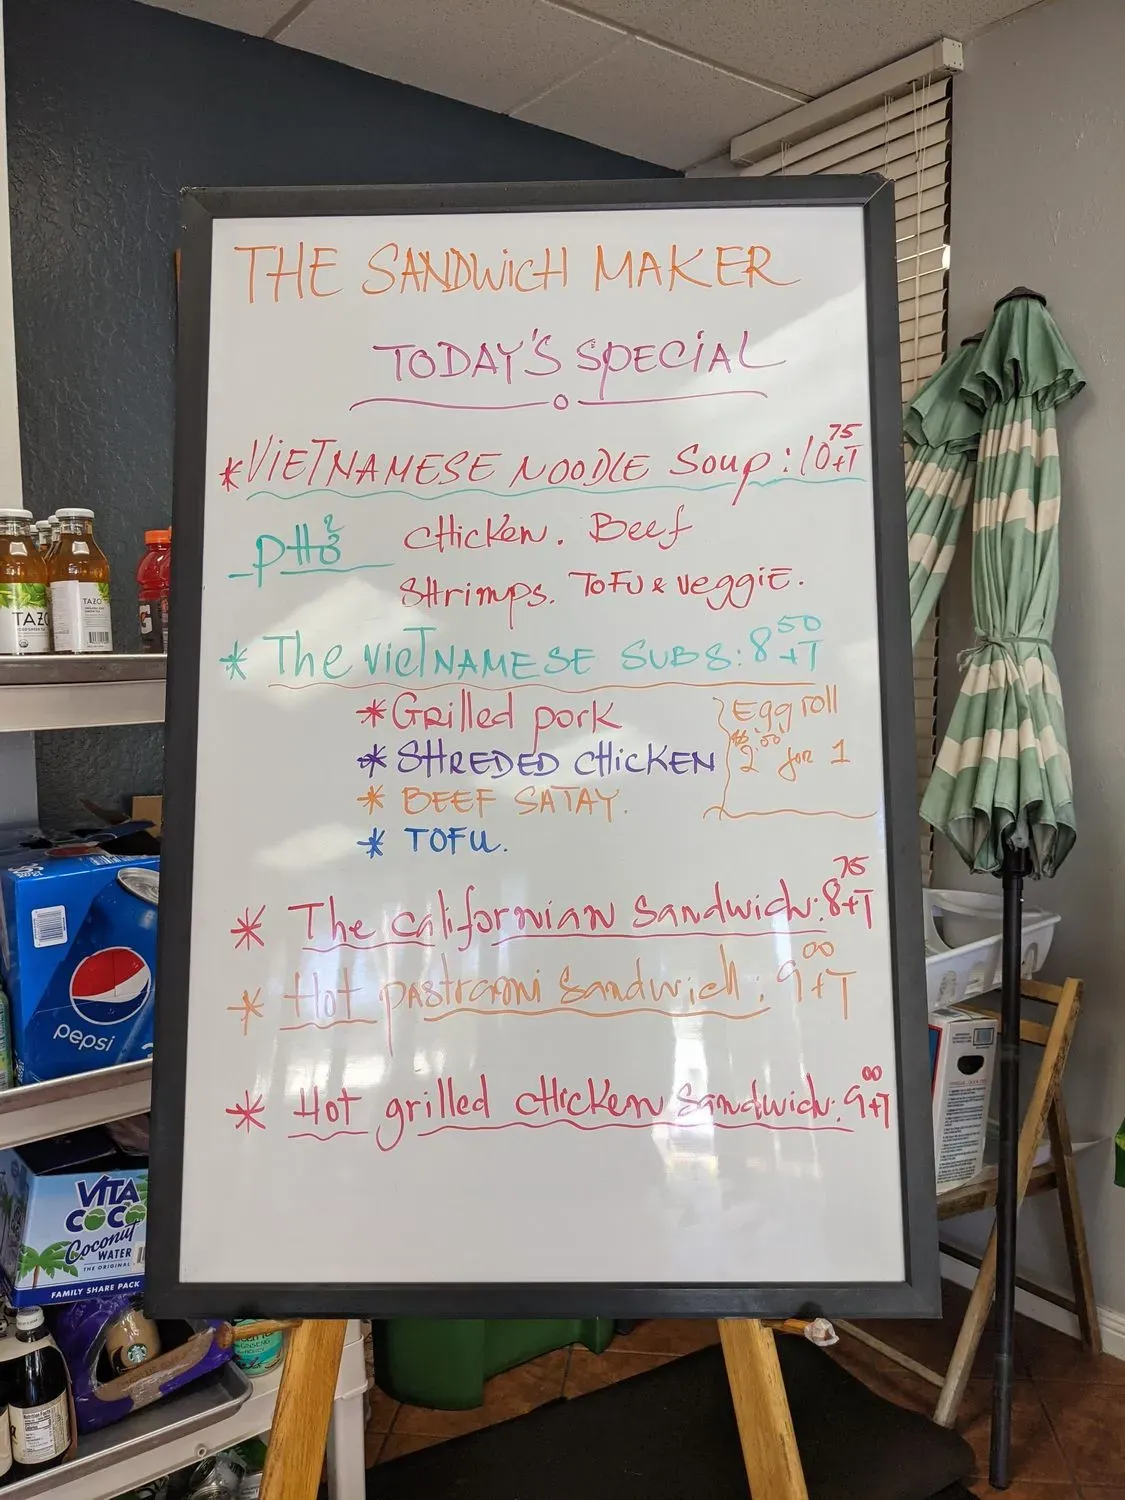 THE SANDWICH MAKER
TODAY'S SPECIAL
* VIETNAMESE NOODLE Soup: 10.75+T
PHỞ Chicken. Beef
Shrimps. TOFU & Veggie.
* The VIETNAMESE SUBS: 8.50+T
* Grilled pork
* SHREDED CHICKEN
* BEEF SATAY.
* TOFU.
Egg roll
2 for 1
* The californian Sandwich: 8.75+T
* Hot pastrami Sandwich: 9.00+T
* Hot grilled chicken Sandwich: 9.00+T
TAZO
TAZO
G
pepsi
VITA
COCO
Coconut
WATER
THE ORIGINAL
FAMILY SHARE PACK